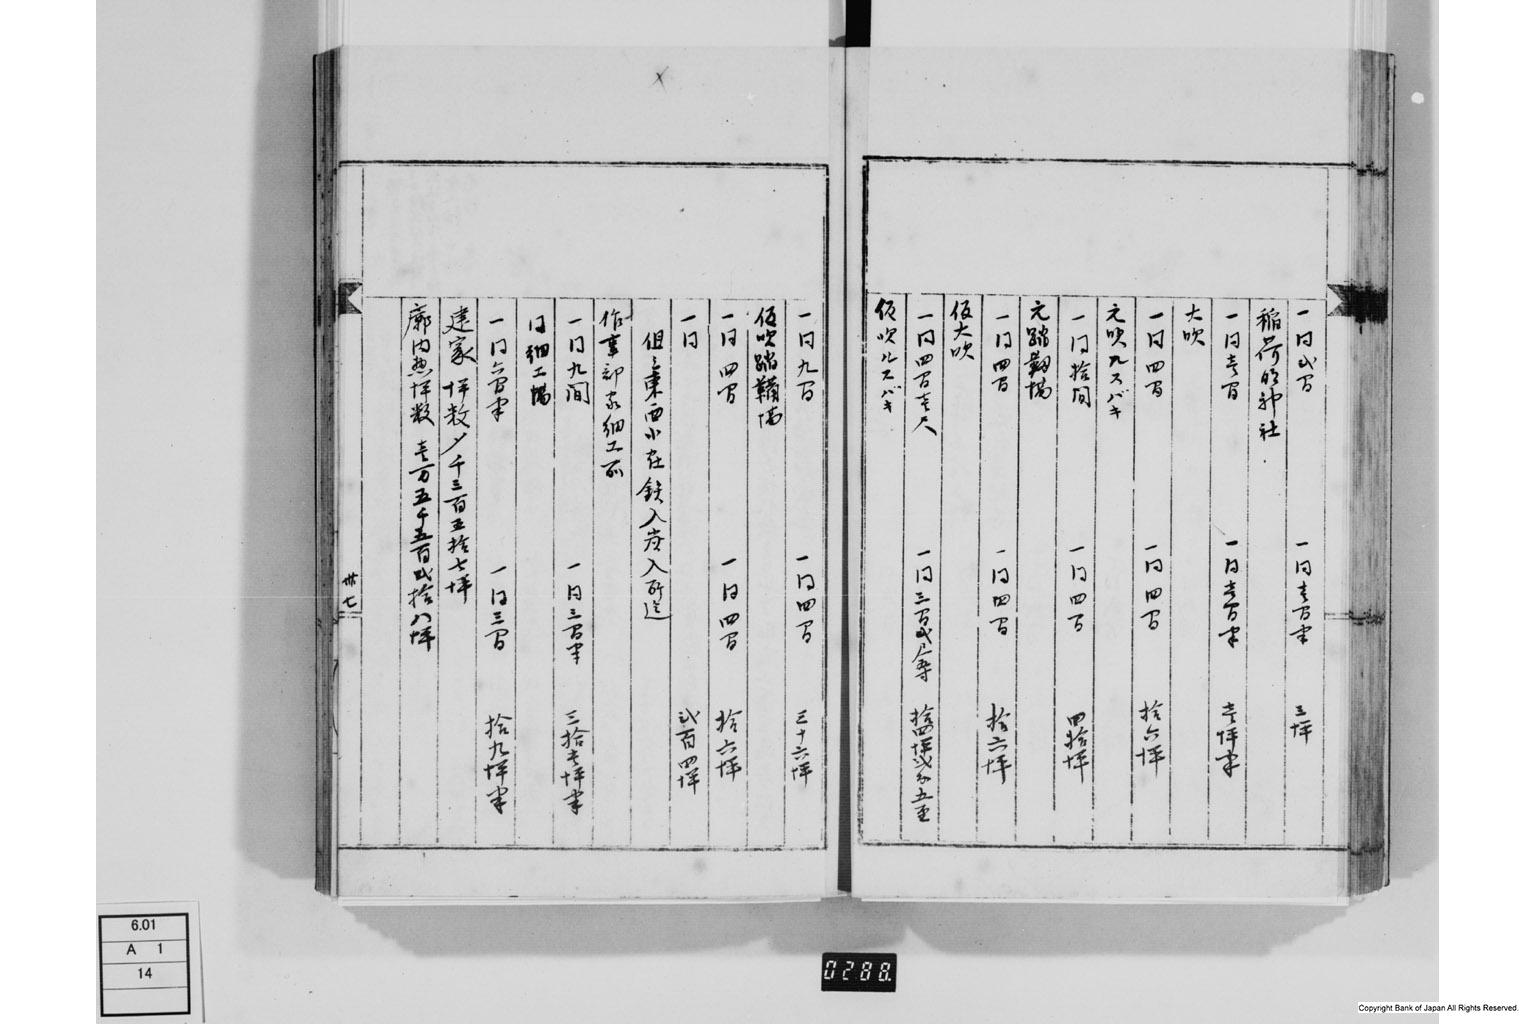 一同弐間 一同壱間半 三坪
稲荷明神社
一同壱間 一同壱間半 壱坪半
大吹
一同四間 一同四間 拾六坪
元吹ルスバキ
一同拾間 一同四間 四拾坪
元踏鞴場
一同四間 一同四間 拾六坪
仮大吹
一同四間壱尺 一同三間弐尺 拾四坪弐分五
仮吹ルスバキ
一同九間 一同四間 三十六坪
仮吹踏鞴場
一同四間 一同四間 拾六坪
一同 弐百四坪
但シ東西小屋鉄入炭入所迄
作事部家細工所
一同九間 一同三間半 三拾壱坪半
同細工場
一同六間半 一同三間 拾九坪半
建家坪数〆千三百五拾七坪
廓内惣坪数 壱万五千五百弐拾八坪
卅七
6.01
A 1
14
0288.
Copyright Bank of Japan All Rights Reserved.